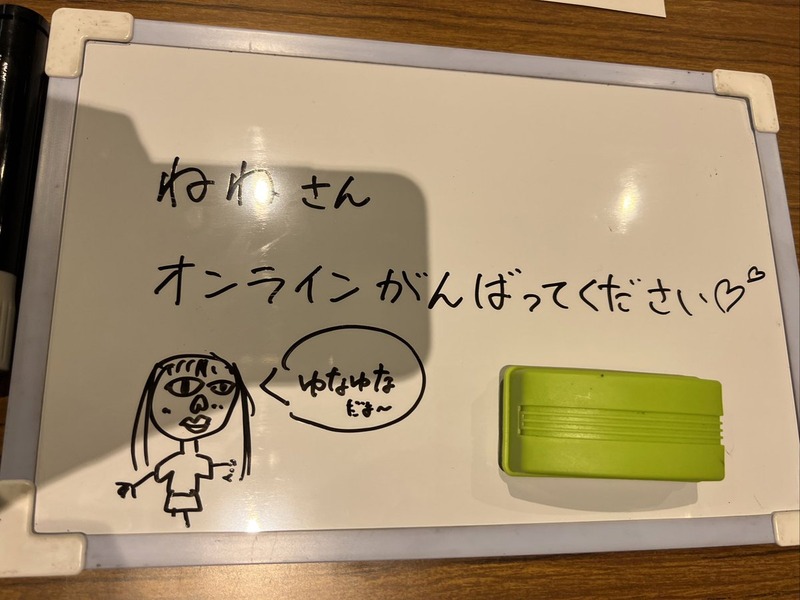 ねねさん
オンラインがんばってください♡♡
ゆなゆな
だよ〜